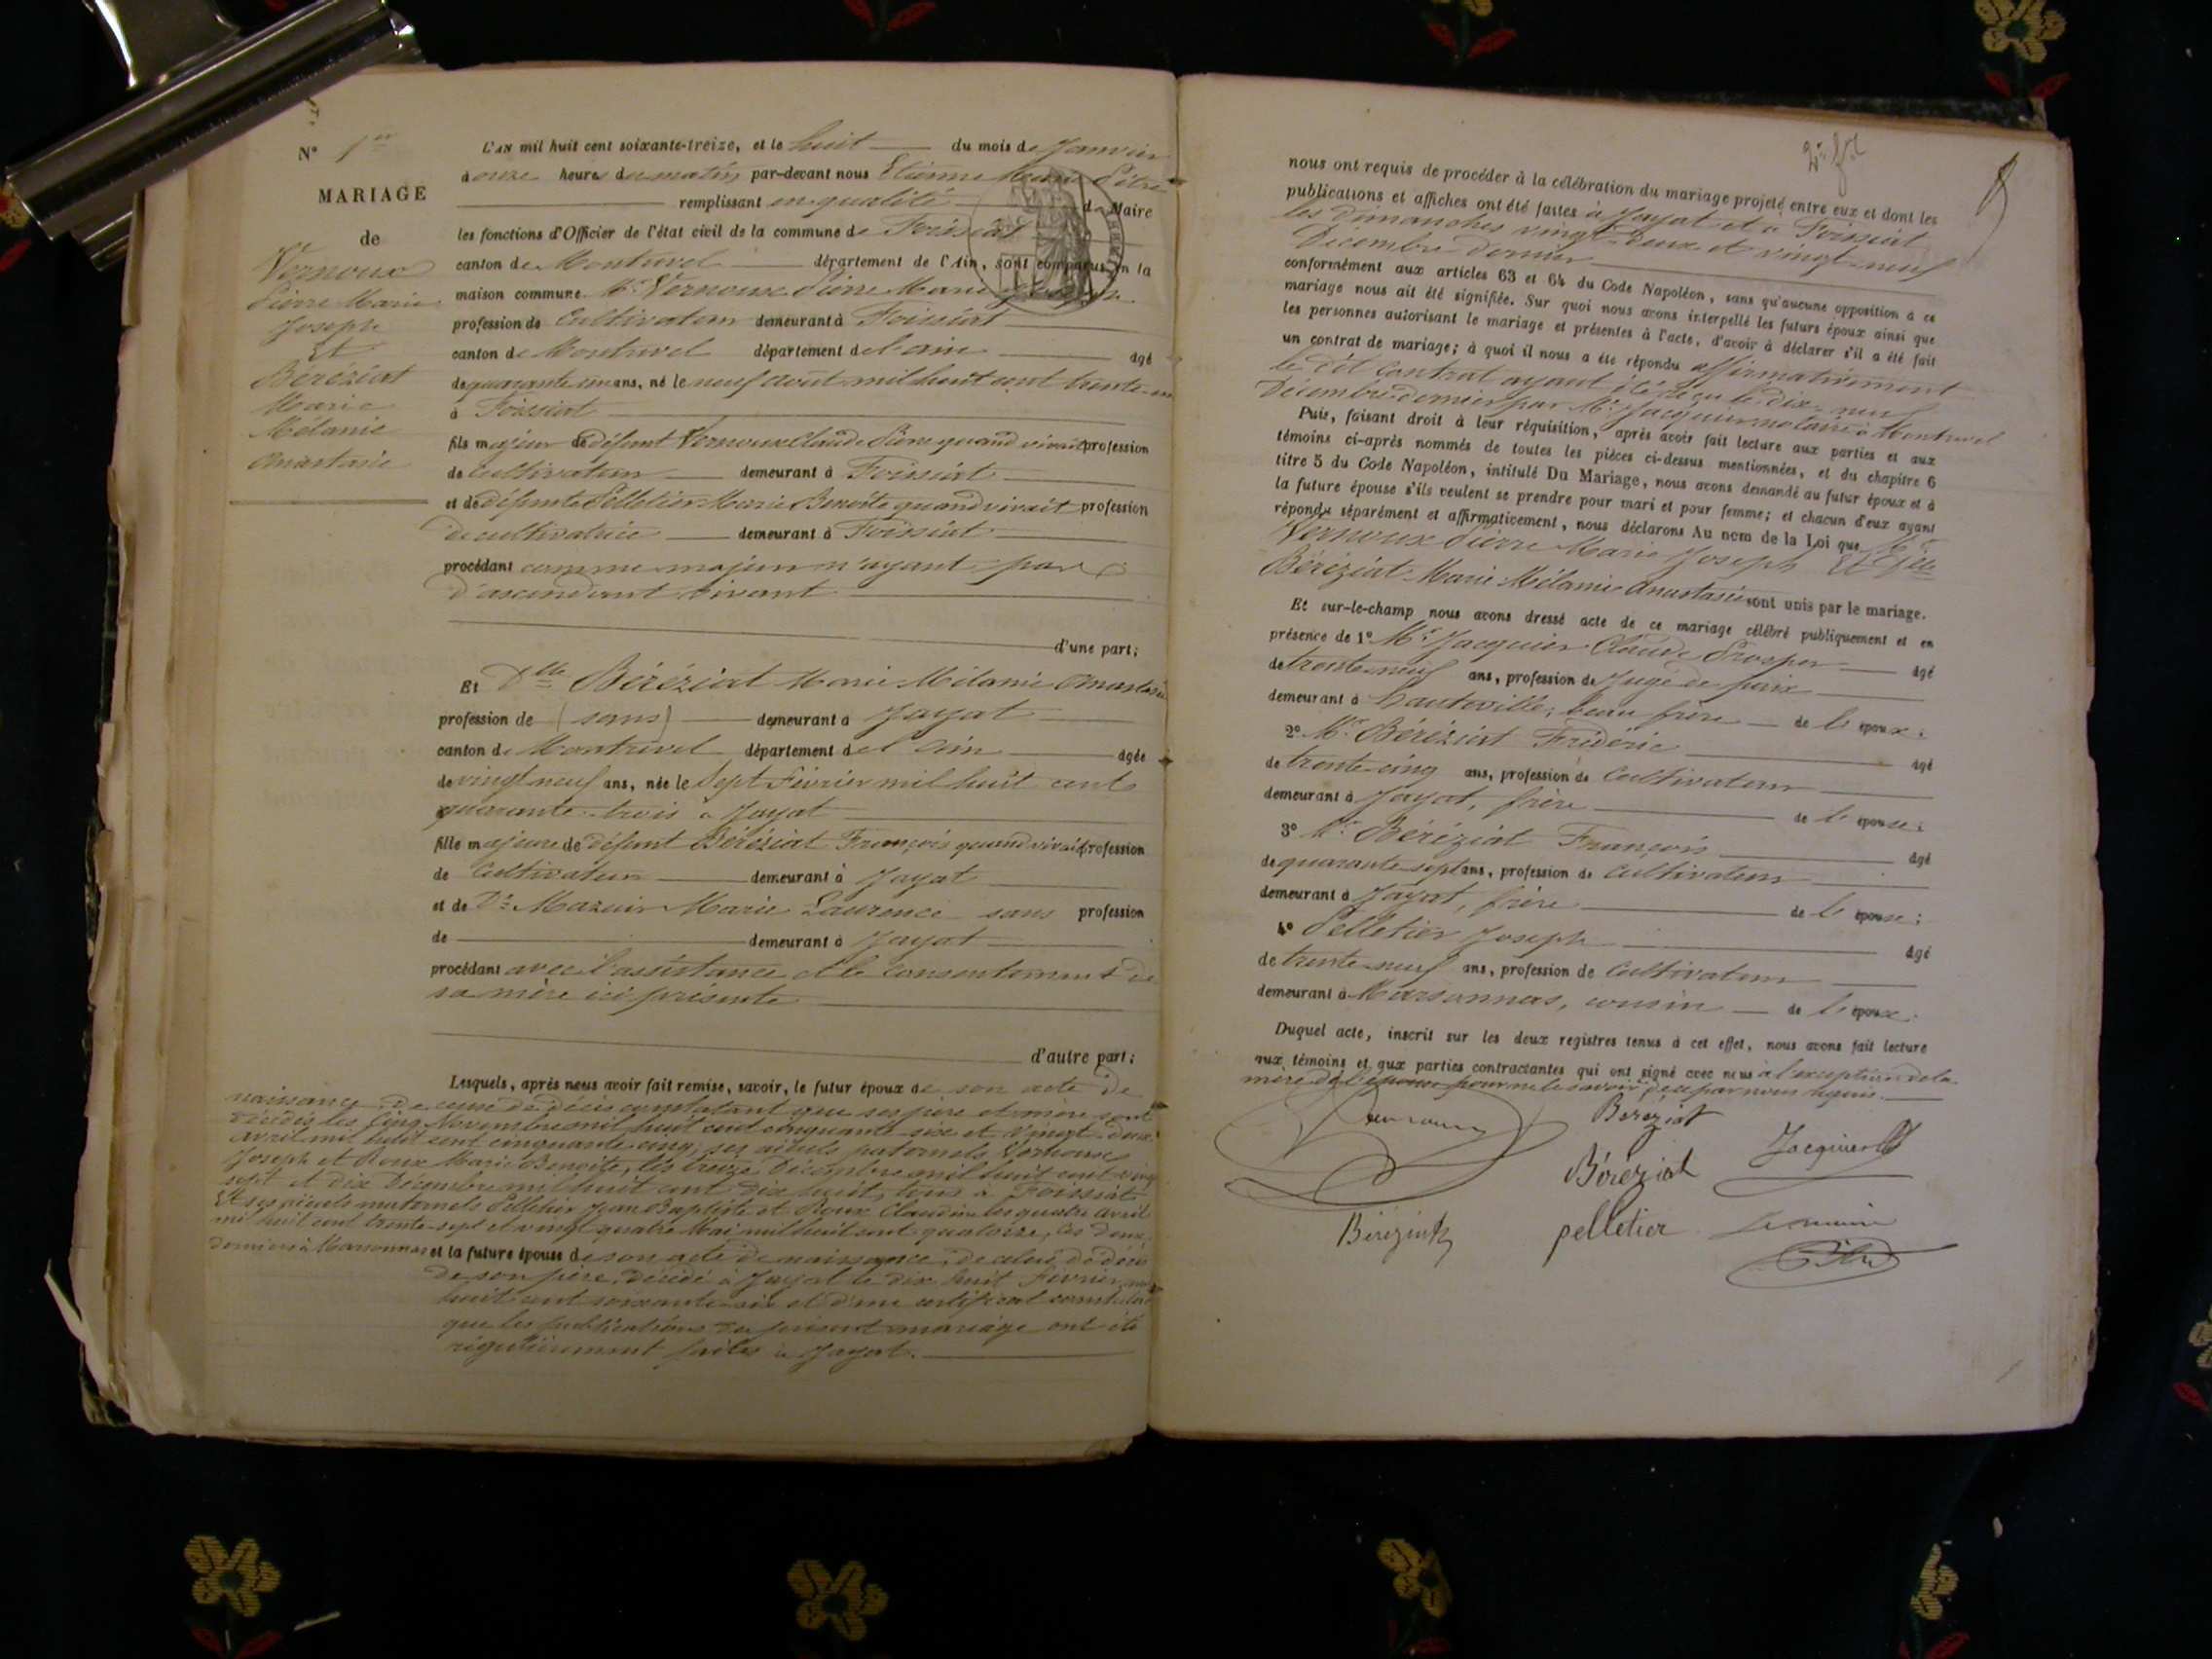 N° 1er
MARIAGE
de
Vernoux
Pierre Marie
Joseph
Et
Béréziat
Marie
Mélanie
Anastasie
L'AN mil huit cent soixante-treize, et le huit du mois de Janvier
à onze heures du matin, par-devant nous Etienne Marie Pitre
remplissant en qualité de Maire
les fonctions d'Officier de l'état civil de la commune de Foissiat
canton de Montrevel département de l'Ain, sont comparus en la
maison commune Mr. Vernoux Pierre Marie Joseph
profession de Cultivateur demeurant à Foissiat
canton de Montrevel département de l'ain âgé
de quarante un ans, né le neuf août mil huit cent trente-un
à Foissiat
fils majeur de défunt Vernoux Claude Pierre quand vivait profession
de Cultivateur demeurant à Foissiat
et de défunte Pelletier Marie Benoite quand vivait profession
de cultivatrice demeurant à Foissiat
procédant comme majeur n'ayant pas
d'ascendant vivant
d'une part;
Et Dlle Béréziat Marie Mélanie Anastasie
profession de (sans) demeurant à Jayat
canton de Montrevel département de l'Ain âgée
de vingt neuf ans, née le Sept Février mil huit cent
quarante-trois à Jayat
fille majeure de défunt Béréziat François quand vivait profession
de Cultivateur demeurant à Jayat
et de De Mazuir Marie Laurence sans profession
de demeurant à Jayat
procédant avec l'assistance et le consentement de
sa mère ici présente
d'autre part;
Lesquels, après nous avoir fait remise, savoir, le futur époux de son acte de
naissance, de ceux de décès constatant que ses père et mère sont
décédés les Cinq Novembre mil huit cent cinquante six et Vingt-deux
avril mil huit cent cinquante cinq, ses aïeuls paternels Vernoux
Joseph et Roux Marie Benoite, les treize Décembre mil huit cent vingt
sept et dix Décembre mil huit cent dix huit, tous à Foissiat
Et ses aïeuls maternels Pelletier Jean Baptiste et Roux Claudine les quatre avril
mil huit cent trente-sept et vingt quatre Mai mil huit cent quatorze, ces deux
derniers à Marsonnas et la future épouse de son acte de naissance, de celui de décès
de son père, décédé à Jayat le dix huit Février mil
huit cent soixante six et d'un certificat constatant
que les publications du présent mariage ont été
régulièrement faites à Jayat.
nous ont requis de procéder à la célébration du mariage projeté entre eux et dont les
publications et affiches ont été faites à Jayat et à Foissiat
les Dimanches vingt-deux et vingt-neuf
Décembre dernier
conformément aux articles 63 et 64 du Code Napoléon, sans qu'aucune opposition à ce
mariage nous ait été signifiée. Sur quoi nous avons interpellé les futurs époux ainsi que
les personnes autorisant le mariage et présentes à l'acte, d'avoir à déclarer s'il a été fait
un contrat de mariage; à quoi il nous a été répondu affirmativement
le dit Contrat ayant été reçu le dix-neuf
Décembre dernier par Me. Jacquier notaire à Montrevel
Puis, faisant droit à leur réquisition, après avoir fait lecture aux parties et aux
témoins ci-après nommés de toutes les pièces ci-dessus mentionnées, et du chapitre 6
titre 5 du Code Napoléon, intitulé Du Mariage, nous avons demandé au futur époux et à
la future épouse s'ils veulent se prendre pour mari et pour femme; et chacun d'eux ayant
répondu séparément et affirmativement, nous déclarons Au nom de la Loi que Mr
Vernoux Pierre Marie Joseph Et Dlle
Béréziat Marie Mélanie Anastasie sont unis par le mariage.
Et sur-le-champ nous avons dressé acte de ce mariage célébré publiquement et en
présence de 1° Mr Jacquier Claude Prosper âgé
de trente-neuf ans, profession de Juge de paix
demeurant à hauteville, beau frère de l'époux;
2° Mr. Béréziat Frédéric âgé
de trente-cinq ans, profession de Cultivateur
demeurant à Jayat, frère de l'épouse;
3° Mr. Béréziat François âgé
de quarante sept ans, profession de Cultivateur
demeurant à Jayat, frère de l'épouse;
4° Pelletier Joseph âgé
de trente-neuf ans, profession de Cultivateur
demeurant à Marsonnas, cousin de l'époux.
Duquel acte, inscrit sur les deux registres tenus à cet effet, nous avons fait lecture
aux témoins et aux parties contractantes qui ont signé avec nous à l'exception de la
mère de l'épouse pour ne le savoir, de ce par nous requis.
Vernoux Béréziat
Jacquier
Béréziat
Béréziat pelletier Le maire
Pitre